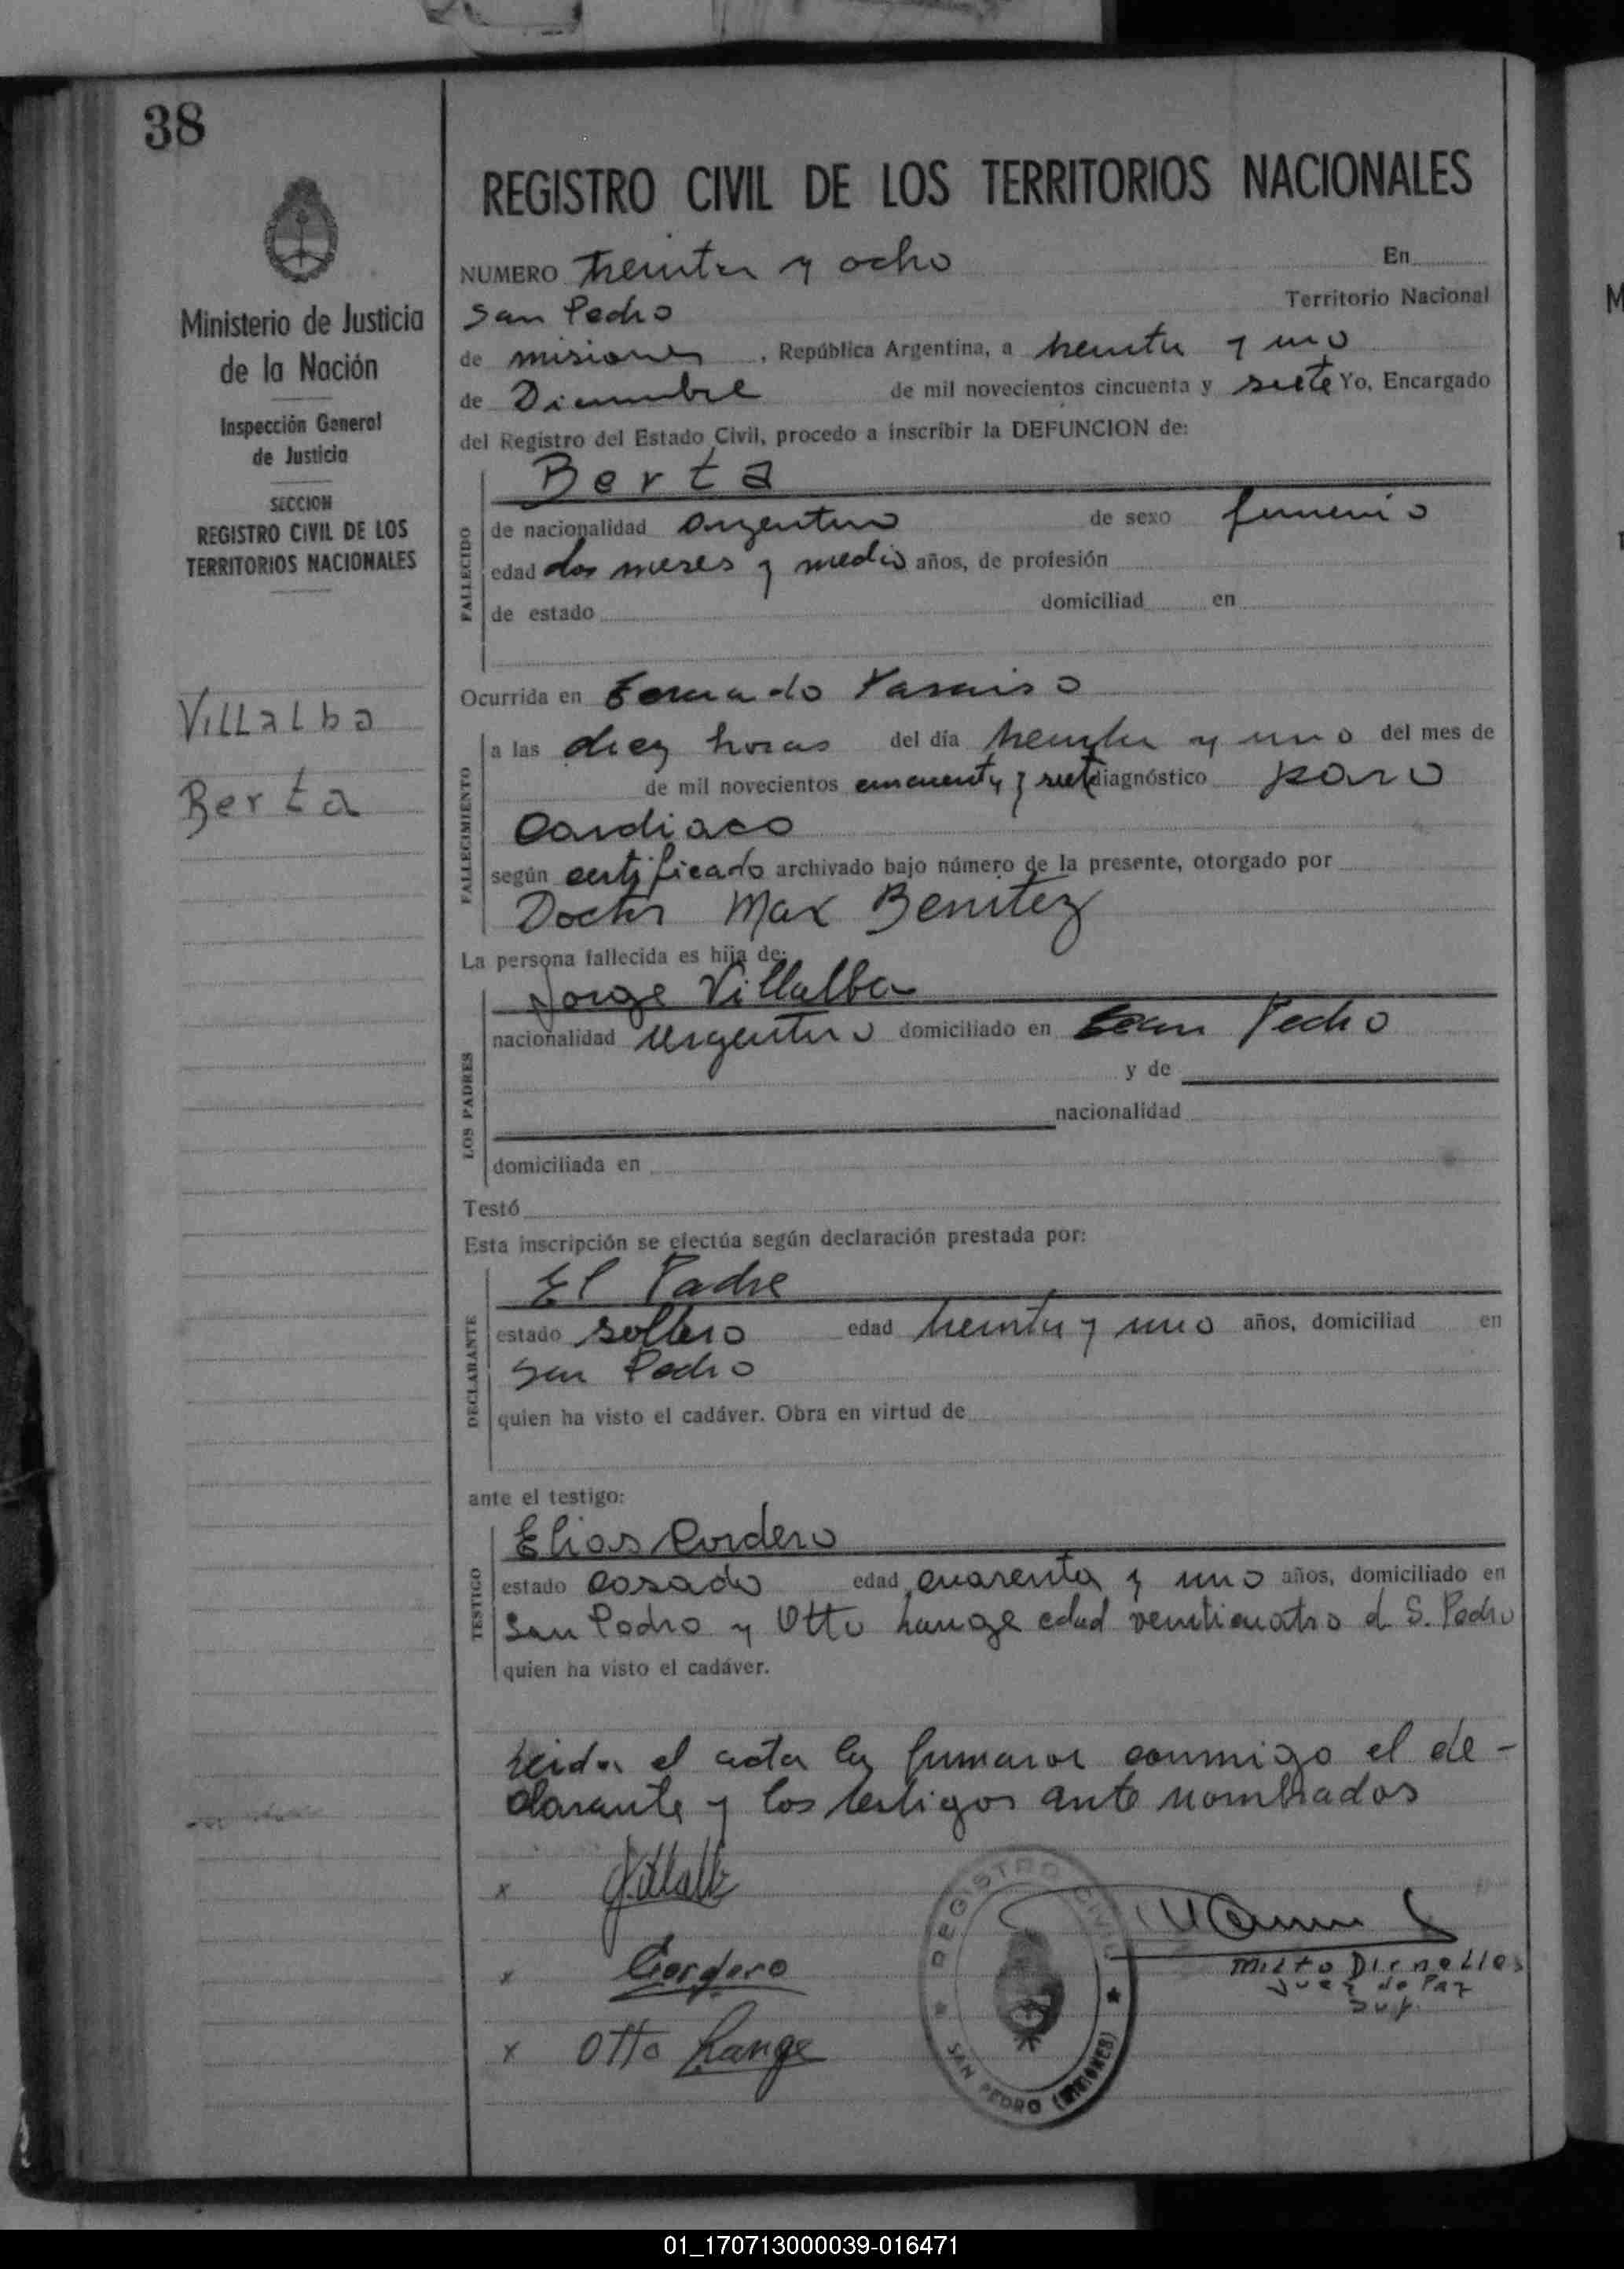 38
REGISTRO CIVIL DE LOS TERRITORIOS NACIONALES
Ministerio de Justicia
de la Nación
Inspección General
de Justicia
SECCION
REGISTRO CIVIL DE LOS
TERRITORIOS NACIONALES
VILLalba
Berta
NUMERO treinta y ocho En
San Pedro Territorio Nacional
de misiones , República Argentina, a treinta y uno
de Diciembre de mil novecientos cincuenta y siete Yo, Encargado
del Registro del Estado Civil, procedo a inscribir la DEFUNCION de:
FALLECIDO
Berta
de nacionalidad argentino de sexo femenino
edad dos meses y medio años, de profesión
de estado domiciliad en
Ocurrida en Paraiso
FALLECIMIENTO
a las diez horas del día treinta y uno del mes de
de mil novecientos cincuenta y siete diagnóstico paro
Cardiaco
según certificado archivado bajo número de la presente, otorgado por
Doctor Max Benitez
La persona fallecida es hija de:
LOS PADRES
Jorge Villalba
nacionalidad argentino domiciliado en San Pedro
y de
nacionalidad
domiciliada en
Testó
Esta inscripción se efectúa según declaración prestada por:
DECLARANTE
El Padre
estado soltero edad treinta y uno años, domiciliad en
San Pedro
quien ha visto el cadáver. Obra en virtud de
ante el testigo:
TESTIGO
Elias Cordero
estado casado edad cuarenta y uno años, domiciliado en
San Pedro y Otto Lange edad venticuatro d. S. Pedro
quien ha visto el cadáver.
Leida el acta la firmaron conmigo el de-
clarante y los testigos ante nombrados
x JVillalb
x Cordero
x Otto Lange
REGISTRO CIVIL
SAN PEDRO (MISIONES)
Juez de Paz
Sup.
01_170713000039-016471